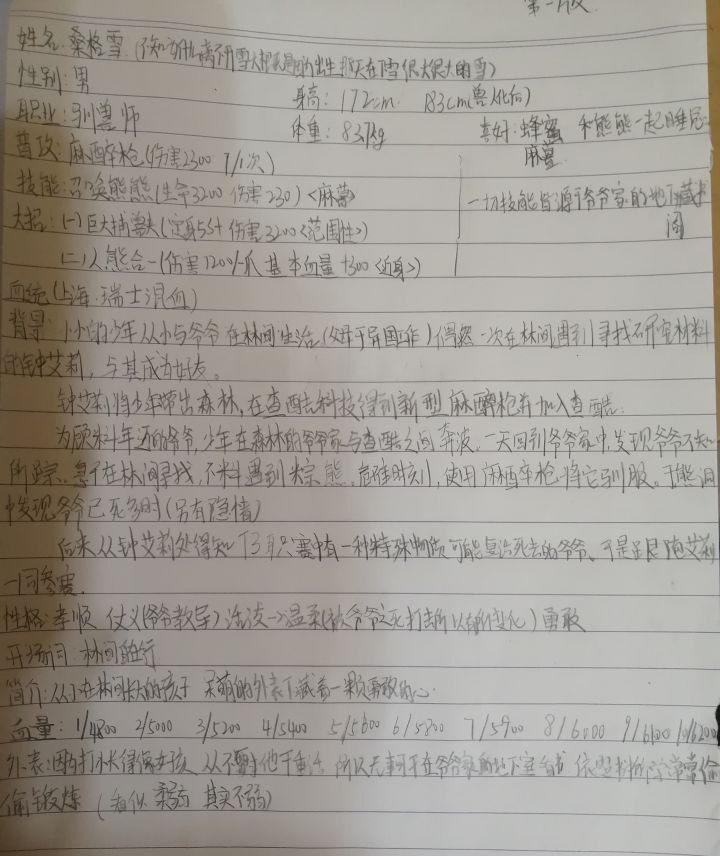 第一版
姓名:桑格雪(不知为什么离不开雪大概是因为出生那天在下雪很大很大的雪)
性别:男
身高:172cm 183cm(兽化后)
职业:驯兽师
体重:83kg
喜好:蜂蜜 和熊熊一起睡觉
普攻:麻醉枪(伤害2300 7/1次)
麻薯
技能:召唤熊熊(生命3200 伤害230)<麻薯>
一切技能皆源于爷爷家的地下藏书阁
大招:(一)巨大捕兽夹(定身5s 伤害3200<范围性>)
(二)人熊合一(伤害1200/爪 基本血量+300<近身>)
血统(上海·瑞士混血)
背景:小小的少年从小与爷爷在林间生活(父母于异国工作)偶然一次在林间遇到寻找研究材料
的钟艾莉,与其成为好友。
钟艾莉将少年带出森林,在查酷科技得到新型麻醉枪并加入查酷.
为照料年迈的爷爷,少年在森林的爷爷家与查酷之间奔波,一天回到爷爷家中,发现爷爷不知
所踪,急于在林间寻找,不料遇到棕熊,危难时刻,使用麻醉枪将它驯服。于熊洞
中发现爷爷已死多时(另有隐情)
后来从钟艾莉处得知 赛中有一种特殊物质可能复活死去的爷爷、于是跟随艾莉
一同参赛.
性格:孝顺 仗义(爷爷教导) 活泼→温柔(被爷爷之死打击所以有所变化) 勇敢
开场词:林间自在行
简介:从小在林间长大的孩子 呆萌的外表下藏着一颗勇敢的心
血量:1/4800 2/5000 3/5200 4/5400 5/5600 6/5800 7/5900 8/6000 9/6100 10/6200
外表:因为打小长得像女孩 从不要求他干重活 所以无事可干在爷爷家的地下室看书 依照书所给常常偷
偷锻炼(看似柔弱 其实不弱)